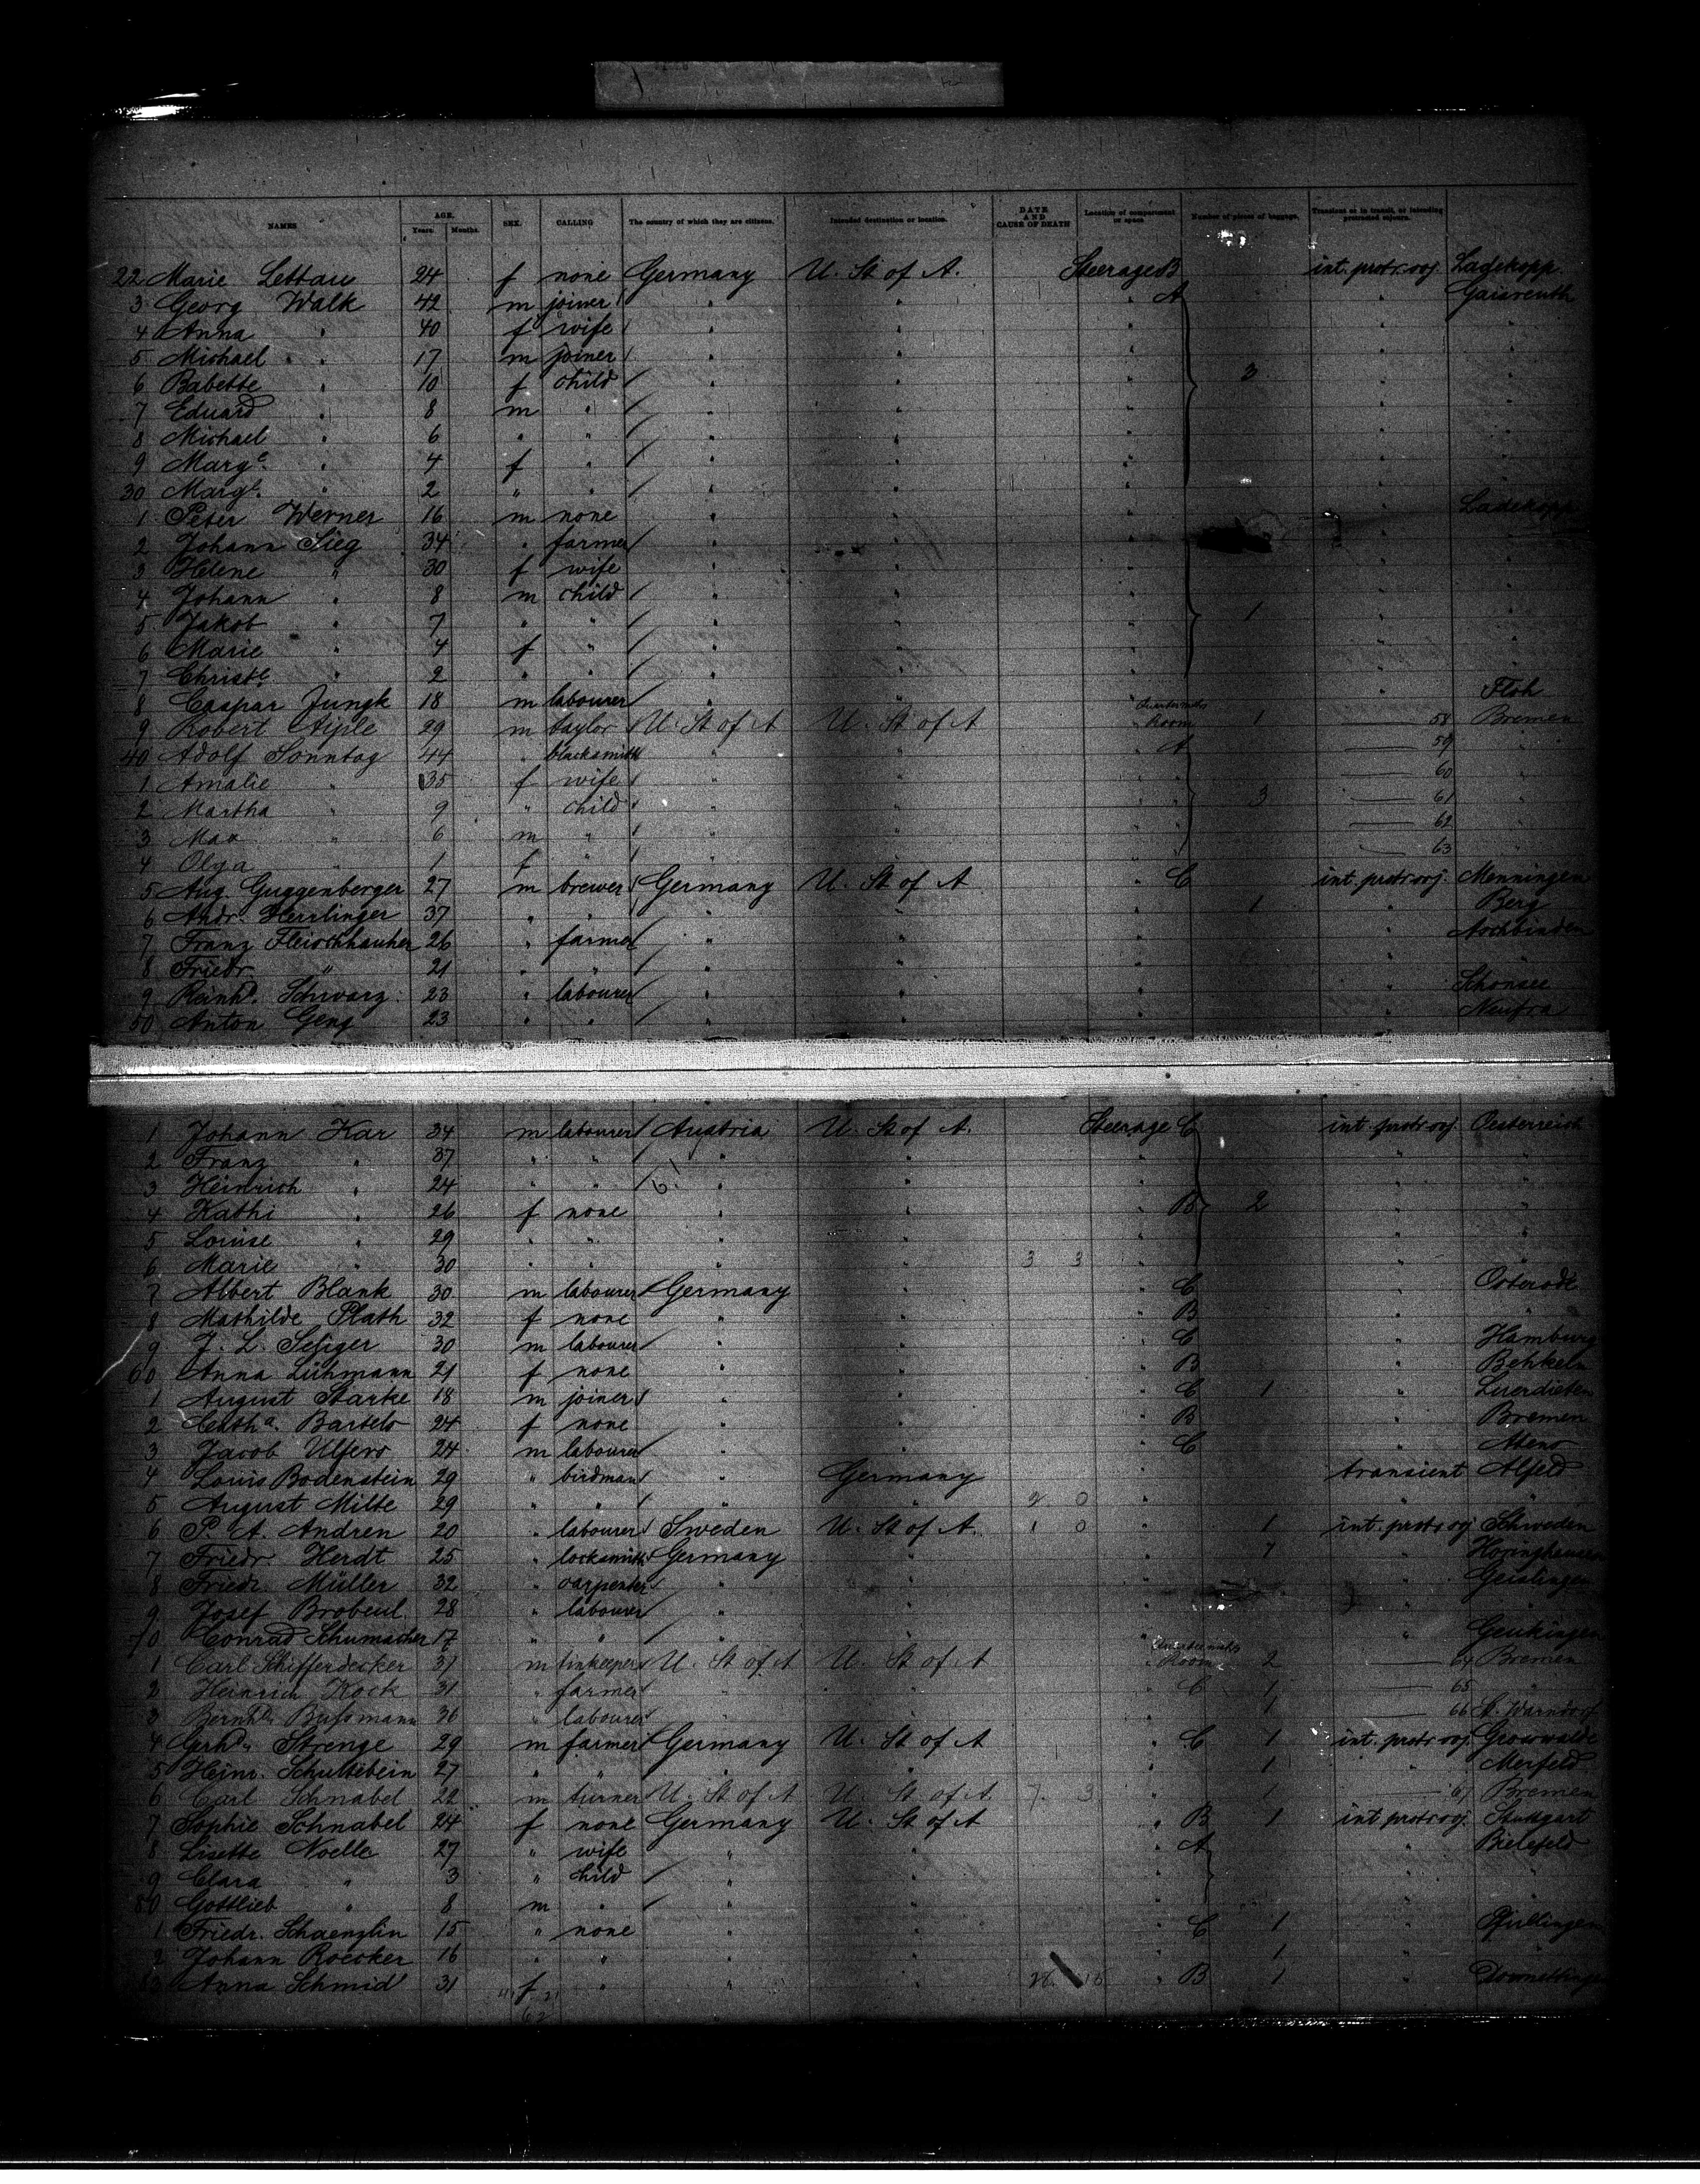 NAMES AGE. Years. Months. SEX. CALLING The country of which they are citizens. Intended destination or location. DATE AND CAUSE OF DEATH Location of compartment or space. Number of pieces of baggage. Transient or in transit, or intending protracted sojourn.
22 Marie Lettau 24 f none Germany U. St of A. Steerage B int. protr. soj. Ladekopp
3 Georg Walk 42 m joiner " " " A " Gaisreuth
4 Anna " 40 f wife " " " " "
5 Michael " 17 m joiner " " " " "
6 Babette " 10 f child " " " 3 " "
7 Eduard " 8 m " " " " " "
8 Michael " 6 " " " " " " "
9 Marge " 4 f " " " " " "
30 Marge " 2 " " " " " " "
1 Peter Werner 16 m none " " " " Ladekopp
2 Johann Sieg 34 " farmer " " " " "
3 Helene " 30 f wife " " " " "
4 Johann " 8 m child " " " " "
5 Jakob " 7 " " " " " 1 " "
6 Marie " 4 f " " " " " "
7 Christe " 2 " " " " " " "
8 Caspar Jungk 18 m labourer " " " " Floh
9 Robert Aiple 29 m taylor U. St of A U. St of A " Room 1 58 Bremen
40 Adolf Sonntag 44 " blacksmith " " " A 59 "
1 Amalie " 35 f wife " " " 60 "
2 Martha " 9 " child " " " 3 61 "
3 Max " 6 m " " " " 62 "
4 Olga " 1 f " " " " 63 "
5 Aug. Guggenberger 27 m brewer Germany U. St of A " C int. protr. soj. Menningen
6 Andr. Herrlinger 37 " " " " " 1 " Berg
7 Franz Fleischhauher 26 " farmer " " " "
8 Friedr. " 21 " " " " " " "
9 Reinhd. Schwarz 23 " labourer " " " " Schönsee
50 Anton Geng 23 " " " " " " Neufra
1 Johann Kar 34 m labourer Austria U. St of A. Steerage C int. protr. soj. Oesterreich
2 Franz " 37 " " " " " " "
3 Heinrich " 24 " " " " " " "
4 Kathi " 26 f none " " " B 2 " "
5 Louise " 29 " " " " " " "
6 Marie " 30 " " " " 3 3 " " "
7 Albert Blank 30 m labourer Germany " " C " Osterode
8 Mathilde Plath 32 f none " " " B " "
9 J. L. Seliger 30 m labourer " " " C " Hamburg
60 Anna Lühmann 21 f none " " " B "
1 August Starke 18 m joiner " " " C 1 "
2 Catha. Bartels 24 f none " " " B " Bremen
3 Jacob Ulfers 24 m labourer " " " C "
4 Louis Bodenstein 29 " birdman " Germany " transient Alfeld
5 August Mitte 29 " " " " 2 0 " " "
6 P. A. Andren 20 " labourer Sweden U. St of A. 1 0 " 1 int. protr. soj. Schweden
7 Friedr. Herdt 25 " locksmith Germany " " 7 "
8 Friedr. Müller 32 " carpenter " " " " Geislingen
9 Josef Brobeul 28 " labourer " " " " "
70 Conrad Schumacher 17 " " " " " " Genkingen
1 Carl Schifferdecker 31 m U. St of A U. St of A " Room 2 64 Bremen
2 Heinrich Kock 31 " farmer " " " C 1 65 "
3 Bernhd. Bußmann 36 " labourer " " " 1 66 Warndorf
4 Gerhd. Strenge 29 m farmer Germany U. St of A " C 1 int. protr. soj.
5 Heinr. Schultebein 27 " " " " " 1 " Merfeld
6 Carl Schnabel 22 m turner U. St of A U. St of A. 7. 3 " 1 67 Bremen
7 Sophie Schnabel 24 f none Germany U. St of A " B 1 int. protr. soj. Stuttgart
8 Lisette Noelle 27 " wife " " " A " Bielefeld
9 Clara " 3 " child " " " " "
80 Gottlieb " 8 m " " " " " "
1 Friedr. Schaenzlin 15 " none " " " C 1 " Pfullingen
2 Johann Roecker 16 " " " " " 1 " "
83 Anna Schmid 31 f " " " " B 1 "
62